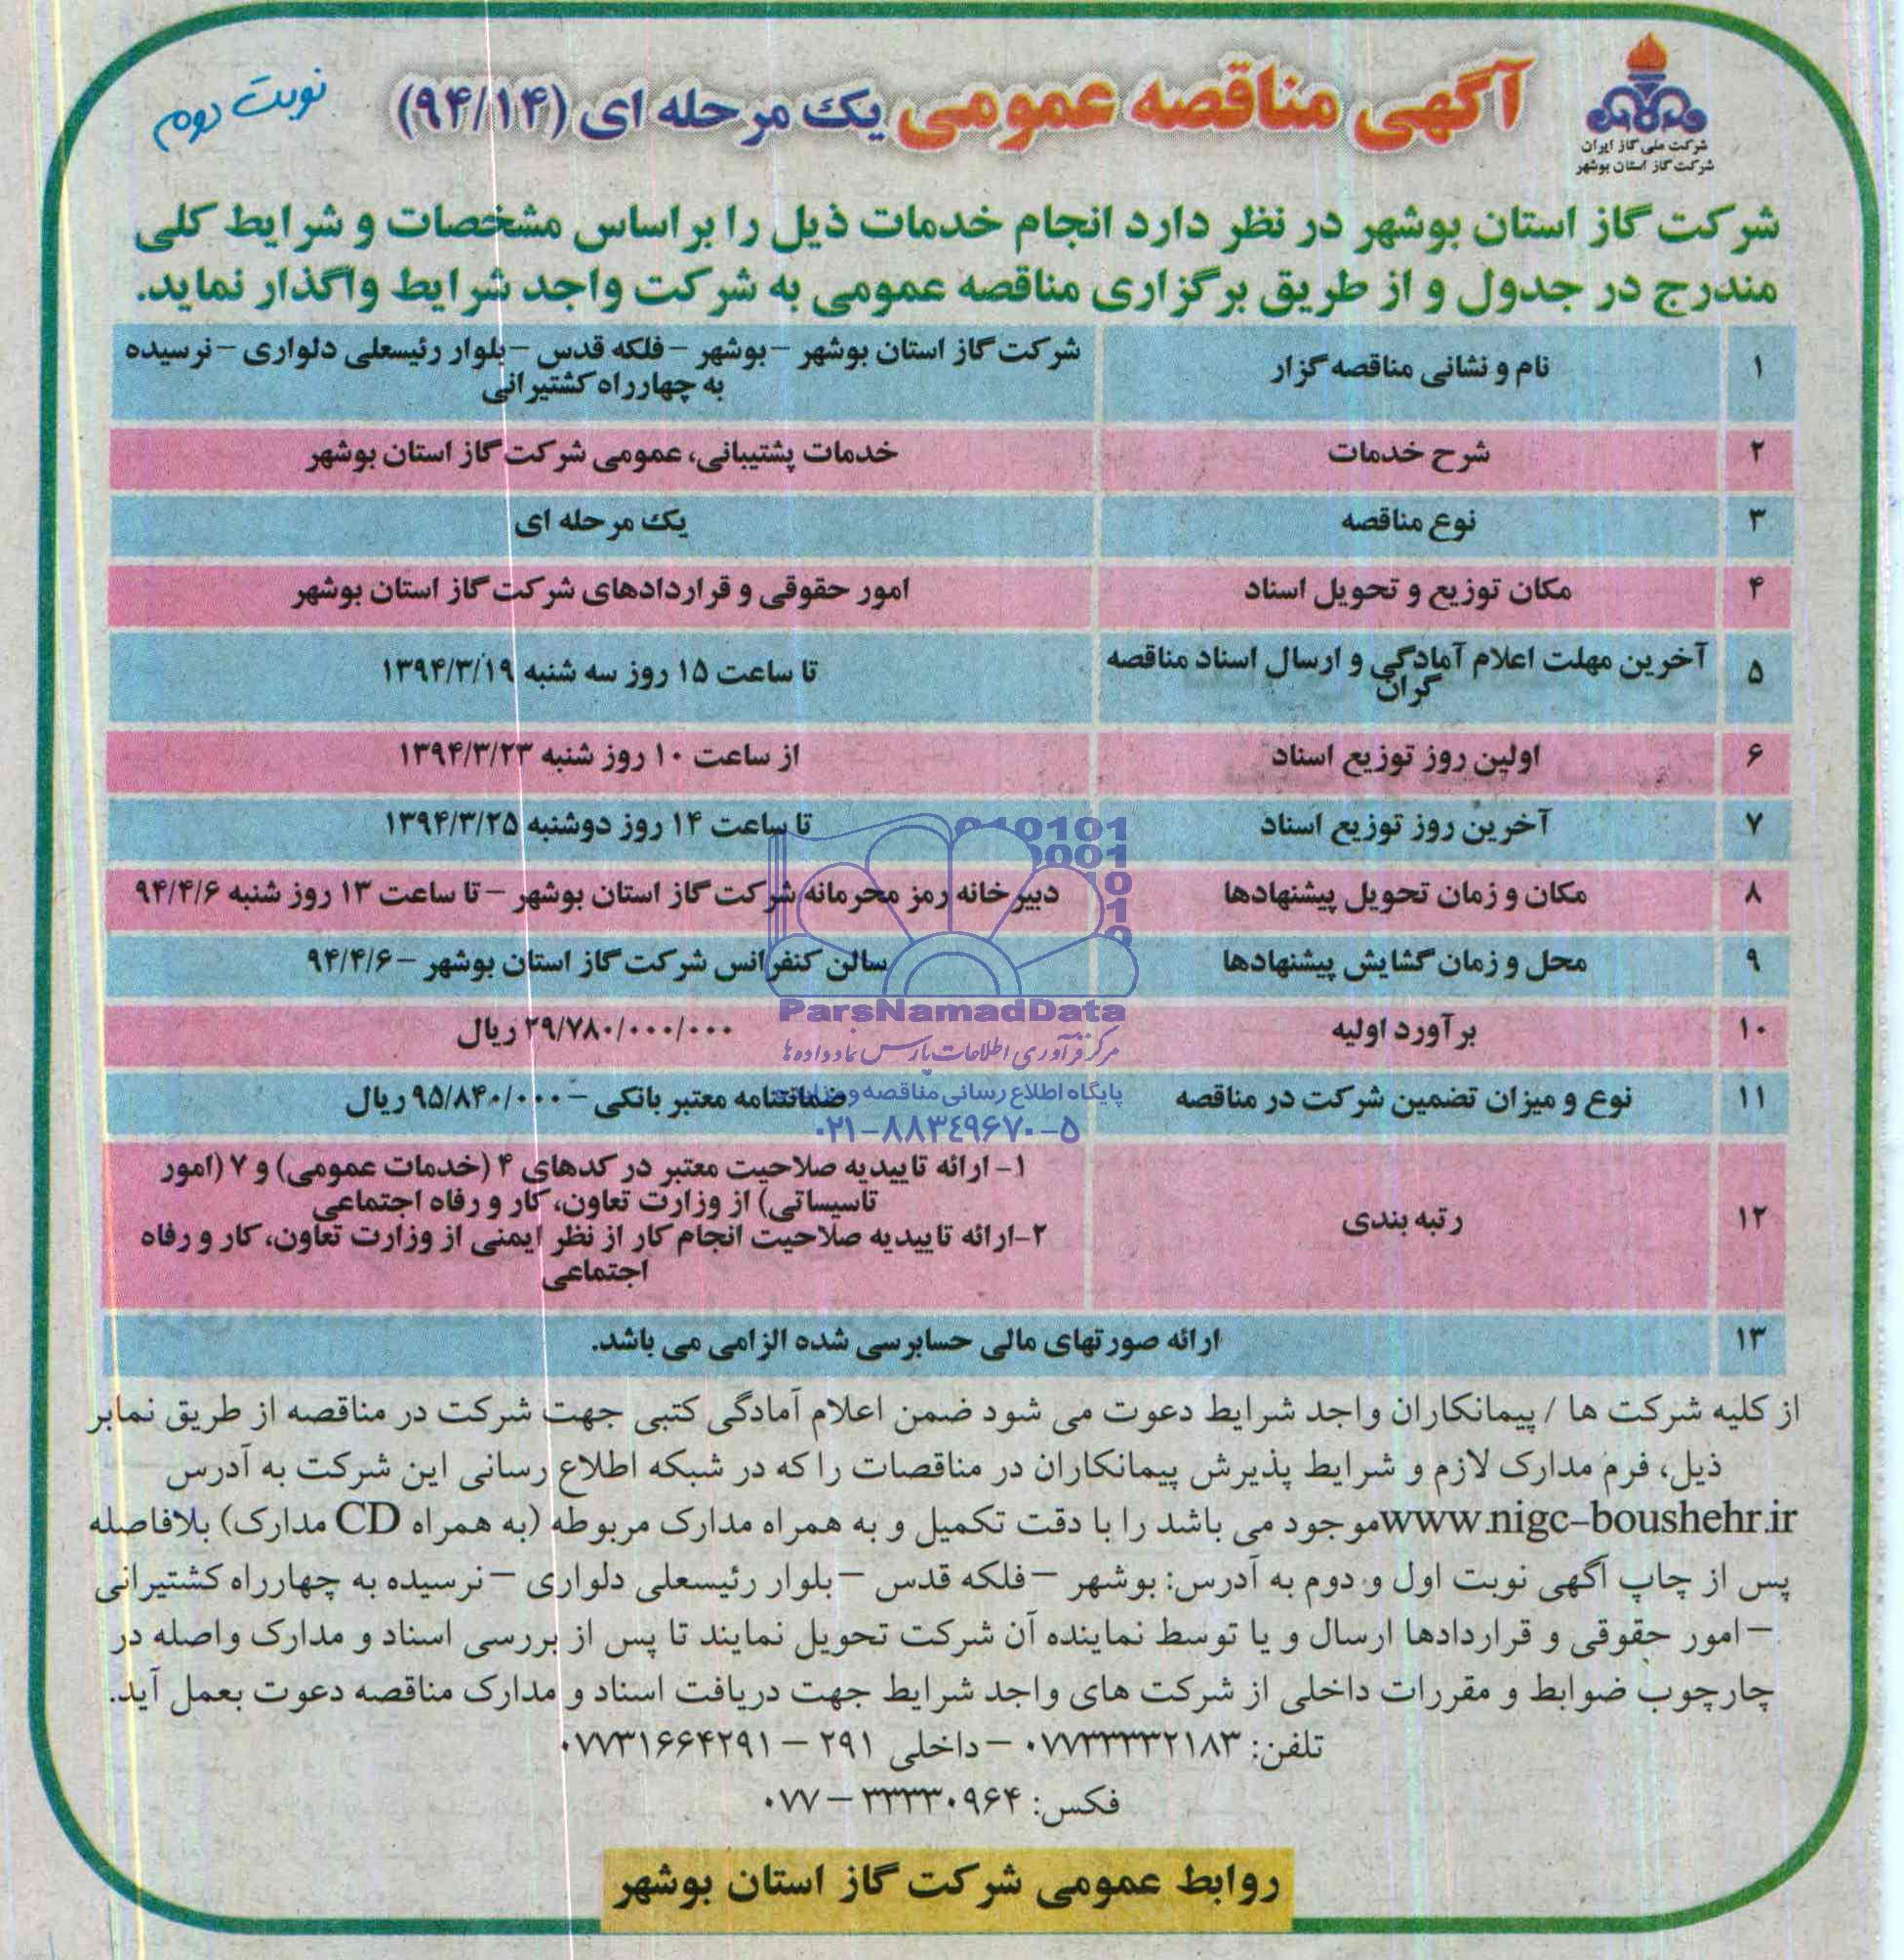 آگهی مناقصه عمومی یک مرحله ای (۹۴/۱۴)
نوبت دوم
شرکت ملی گاز ایران
شرکت گاز استان بوشهر
شرکت گاز استان بوشهر در نظر دارد انجام خدمات ذیل را براساس مشخصات و شرایط کلی
مندرج در جدول و از طریق برگزاری مناقصه عمومی به شرکت واجد شرایط واگذار نماید.
۱ نام و نشانی مناقصه گزار شرکت گاز استان بوشهر – بوشهر – فلکه قدس – بلوار رئیسعلی دلواری – نرسیده
به چهارراه کشتیرانی
۲ شرح خدمات خدمات پشتیبانی، عمومی شرکت گاز استان بوشهر
۳ نوع مناقصه یک مرحله ای
۴ مکان توزیع و تحویل اسناد امور حقوقی و قراردادهای شرکت گاز استان بوشهر
۵ آخرین مهلت اعلام آمادگی و ارسال اسناد مناقصه
گران
تا ساعت ۱۵ روز سه شنبه ۱۳۹۴/۳/۱۹
۶ اولین روز توزیع اسناد از ساعت ۱۰ روز شنبه ۱۳۹۴/۳/۲۳
۷ آخرین روز توزیع اسناد تا ساعت ۱۴ روز دوشنبه ۱۳۹۴/۳/۲۵
۸ مکان و زمان تحویل پیشنهادها دبیرخانه رمز محرمانه شرکت گاز استان بوشهر – تا ساعت ۱۳ روز شنبه ۹۴/۴/۶
۹ محل و زمان گشایش پیشنهادها سالن کنفرانس شرکت گاز استان بوشهر – ۹۴/۴/۶
۱۰ برآورد اولیه ۲۹/۷۸۰/۰۰۰/۰۰۰ ریال
۱۱ نوع و میزان تضمین شرکت در مناقصه ضمانتنامه معتبر بانکی – ۹۵/۸۴۰/۰۰۰ ریال
۱۲ رتبه بندی
۱- ارائه تاییدیه صلاحیت معتبر در کدهای ۴ (خدمات عمومی) و ۷ (امور
تاسیساتی) از وزارت تعاون، کار و رفاه اجتماعی
۲-ارائه تاییدیه صلاحیت انجام کار از نظر ایمنی از وزارت تعاون، کار و رفاه
اجتماعی
۱۳ ارائه صورتهای مالی حسابرسی شده الزامی می باشد.
010101
0001
10
10
ParsNamadData
مرکز فرآوری اطلاعات پارس نماد داده ها
پایگاه اطلاع رسانی مناقصه و
۰۲۱-۸۸۳۴۹۶۷۰-۵
از کلیه شرکت ها / پیمانکاران واجد شرایط دعوت می شود ضمن اعلام آمادگی کتبی جهت شرکت در مناقصه از طریق نمابر
ذیل، فرم مدارک لازم و شرایط پذیرش پیمانکاران در مناقصات را که در شبکه اطلاع رسانی این شرکت به آدرس
www.nigc-boushehr.ir موجود می باشد را با دقت تکمیل و به همراه مدارک مربوطه (به همراه CD مدارک) بلافاصله
پس از چاپ آگهی نوبت اول و دوم به آدرس: بوشهر – فلکه قدس – بلوار رئیسعلی دلواری – نرسیده به چهارراه کشتیرانی
– امور حقوقی و قراردادها ارسال و یا توسط نماینده آن شرکت تحویل نمایند تا پس از بررسی اسناد و مدارک واصله در
چارچوب ضوابط و مقررات داخلی از شرکت های واجد شرایط جهت دریافت اسناد و مدارک مناقصه دعوت بعمل آید.
تلفن: ۰۷۷۳۳۳۳۲۱۸۳ – داخلی ۲۹۱ – ۰۷۷۳۱۶۶۴۲۹۱
فکس: ۳۳۳۳۰۹۶۴ – ۰۷۷
روابط عمومی شرکت گاز استان بوشهر